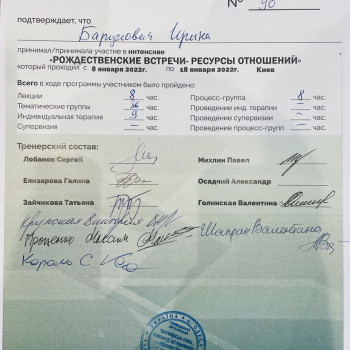 № 90
подтверждает, что
Барулович Ирина
принимал/принимала участие в интенсиве
«РОЖДЕСТВЕНСКИЕ ВСТРЕЧИ- РЕСУРСЫ ОТНОШЕНИЙ»
который проходил с 8 января 2022г. по 18 января 2022г. Киев
Всего в ходе программы участником было пройдено:
Лекции 8 час. Процесс-группа 8 час.
Тематические группы час. Проведение инд. терапии – час.
Индивидуальная терапия 9 час. Проведение супервизии – час.
Супервизия – час. Проведение процесс-групп – час.
Тренерский состав:
Лобанов Сергей Михлин Павел
Елизарова Галина Осадчий Александр
Зайчикова Татьяна Голинская Валентина
Крупская Виктория
Троценко Максим Шапран Валентина
Король С
УКРАЇНА ОДЕСА